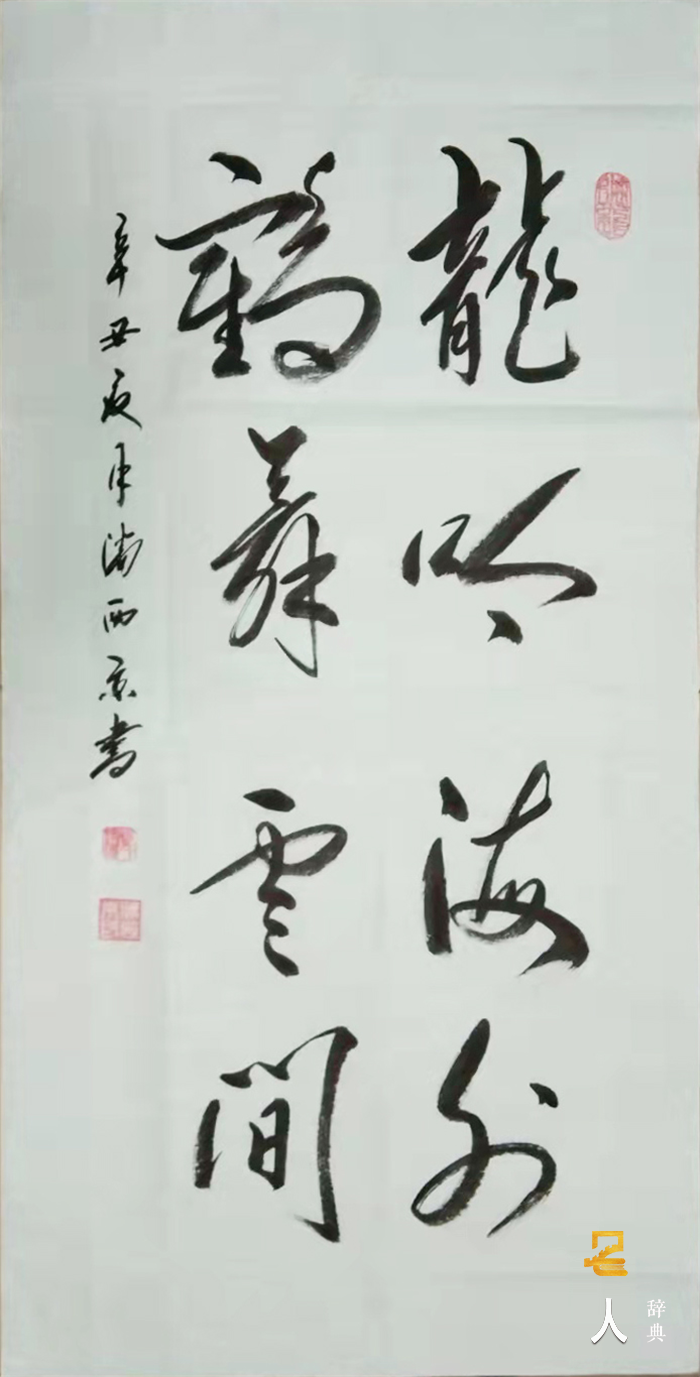 龍吟海外
鶴舞雲間
辛丑夏月西京書
名人
辞典